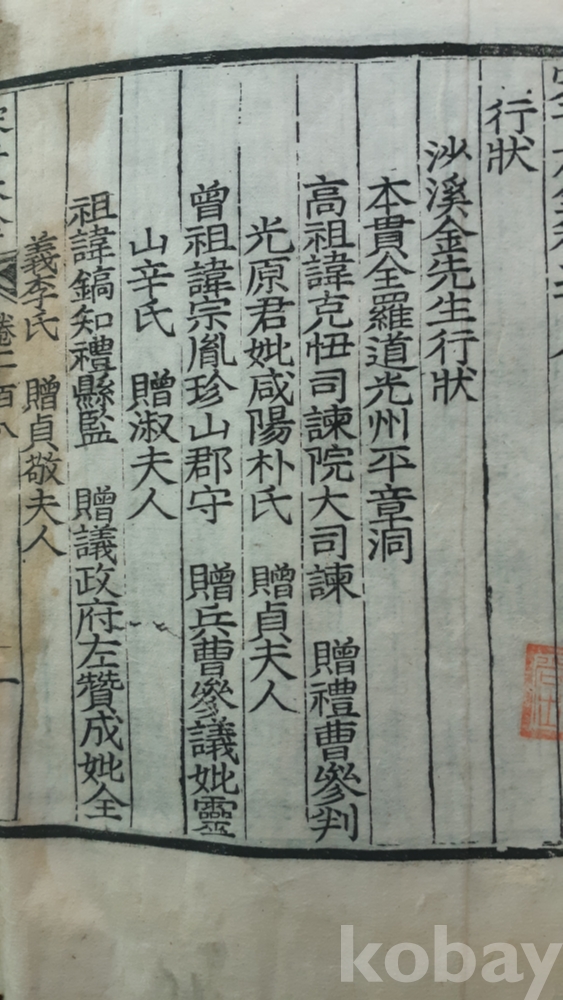 行狀
沙溪金先生行狀
本貫全羅道光州平章洞
高祖諱克忸司諫院大司諫 贈禮曹參判
光原君妣咸陽朴氏 贈貞夫人
曾祖諱宗胤珍山郡守 贈兵曹參議妣靈
山辛氏 贈淑夫人
祖諱鎬知禮縣監 贈議政府左贊成妣全
義李氏 贈貞敬夫人
卷二百八
一
kobay